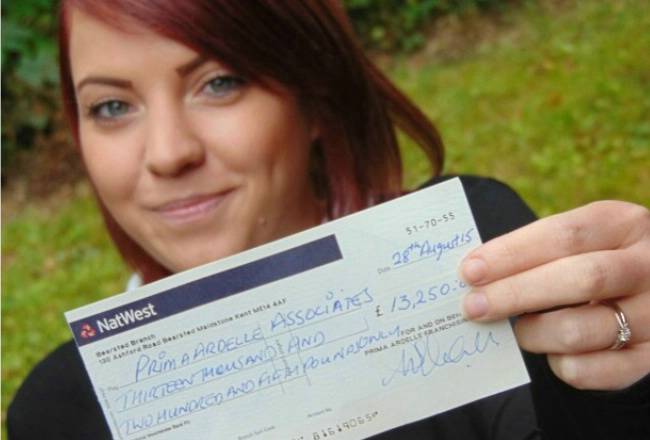 51-70-55
NatWest
Date 28th August 15
Bearsted Branch
130 Ashford Road Bearsted Maidstone Kent ME14 4AF
Pay PRIMA ARDELLE ASSOCIATES
£ 13,250.0
THIRTEEN THOUSAND AND
TWO HUNDRED AND FIFTY POUNDS ONLY
FOR AND ON BEH
PRIMA ARDELLE FRANCHIS